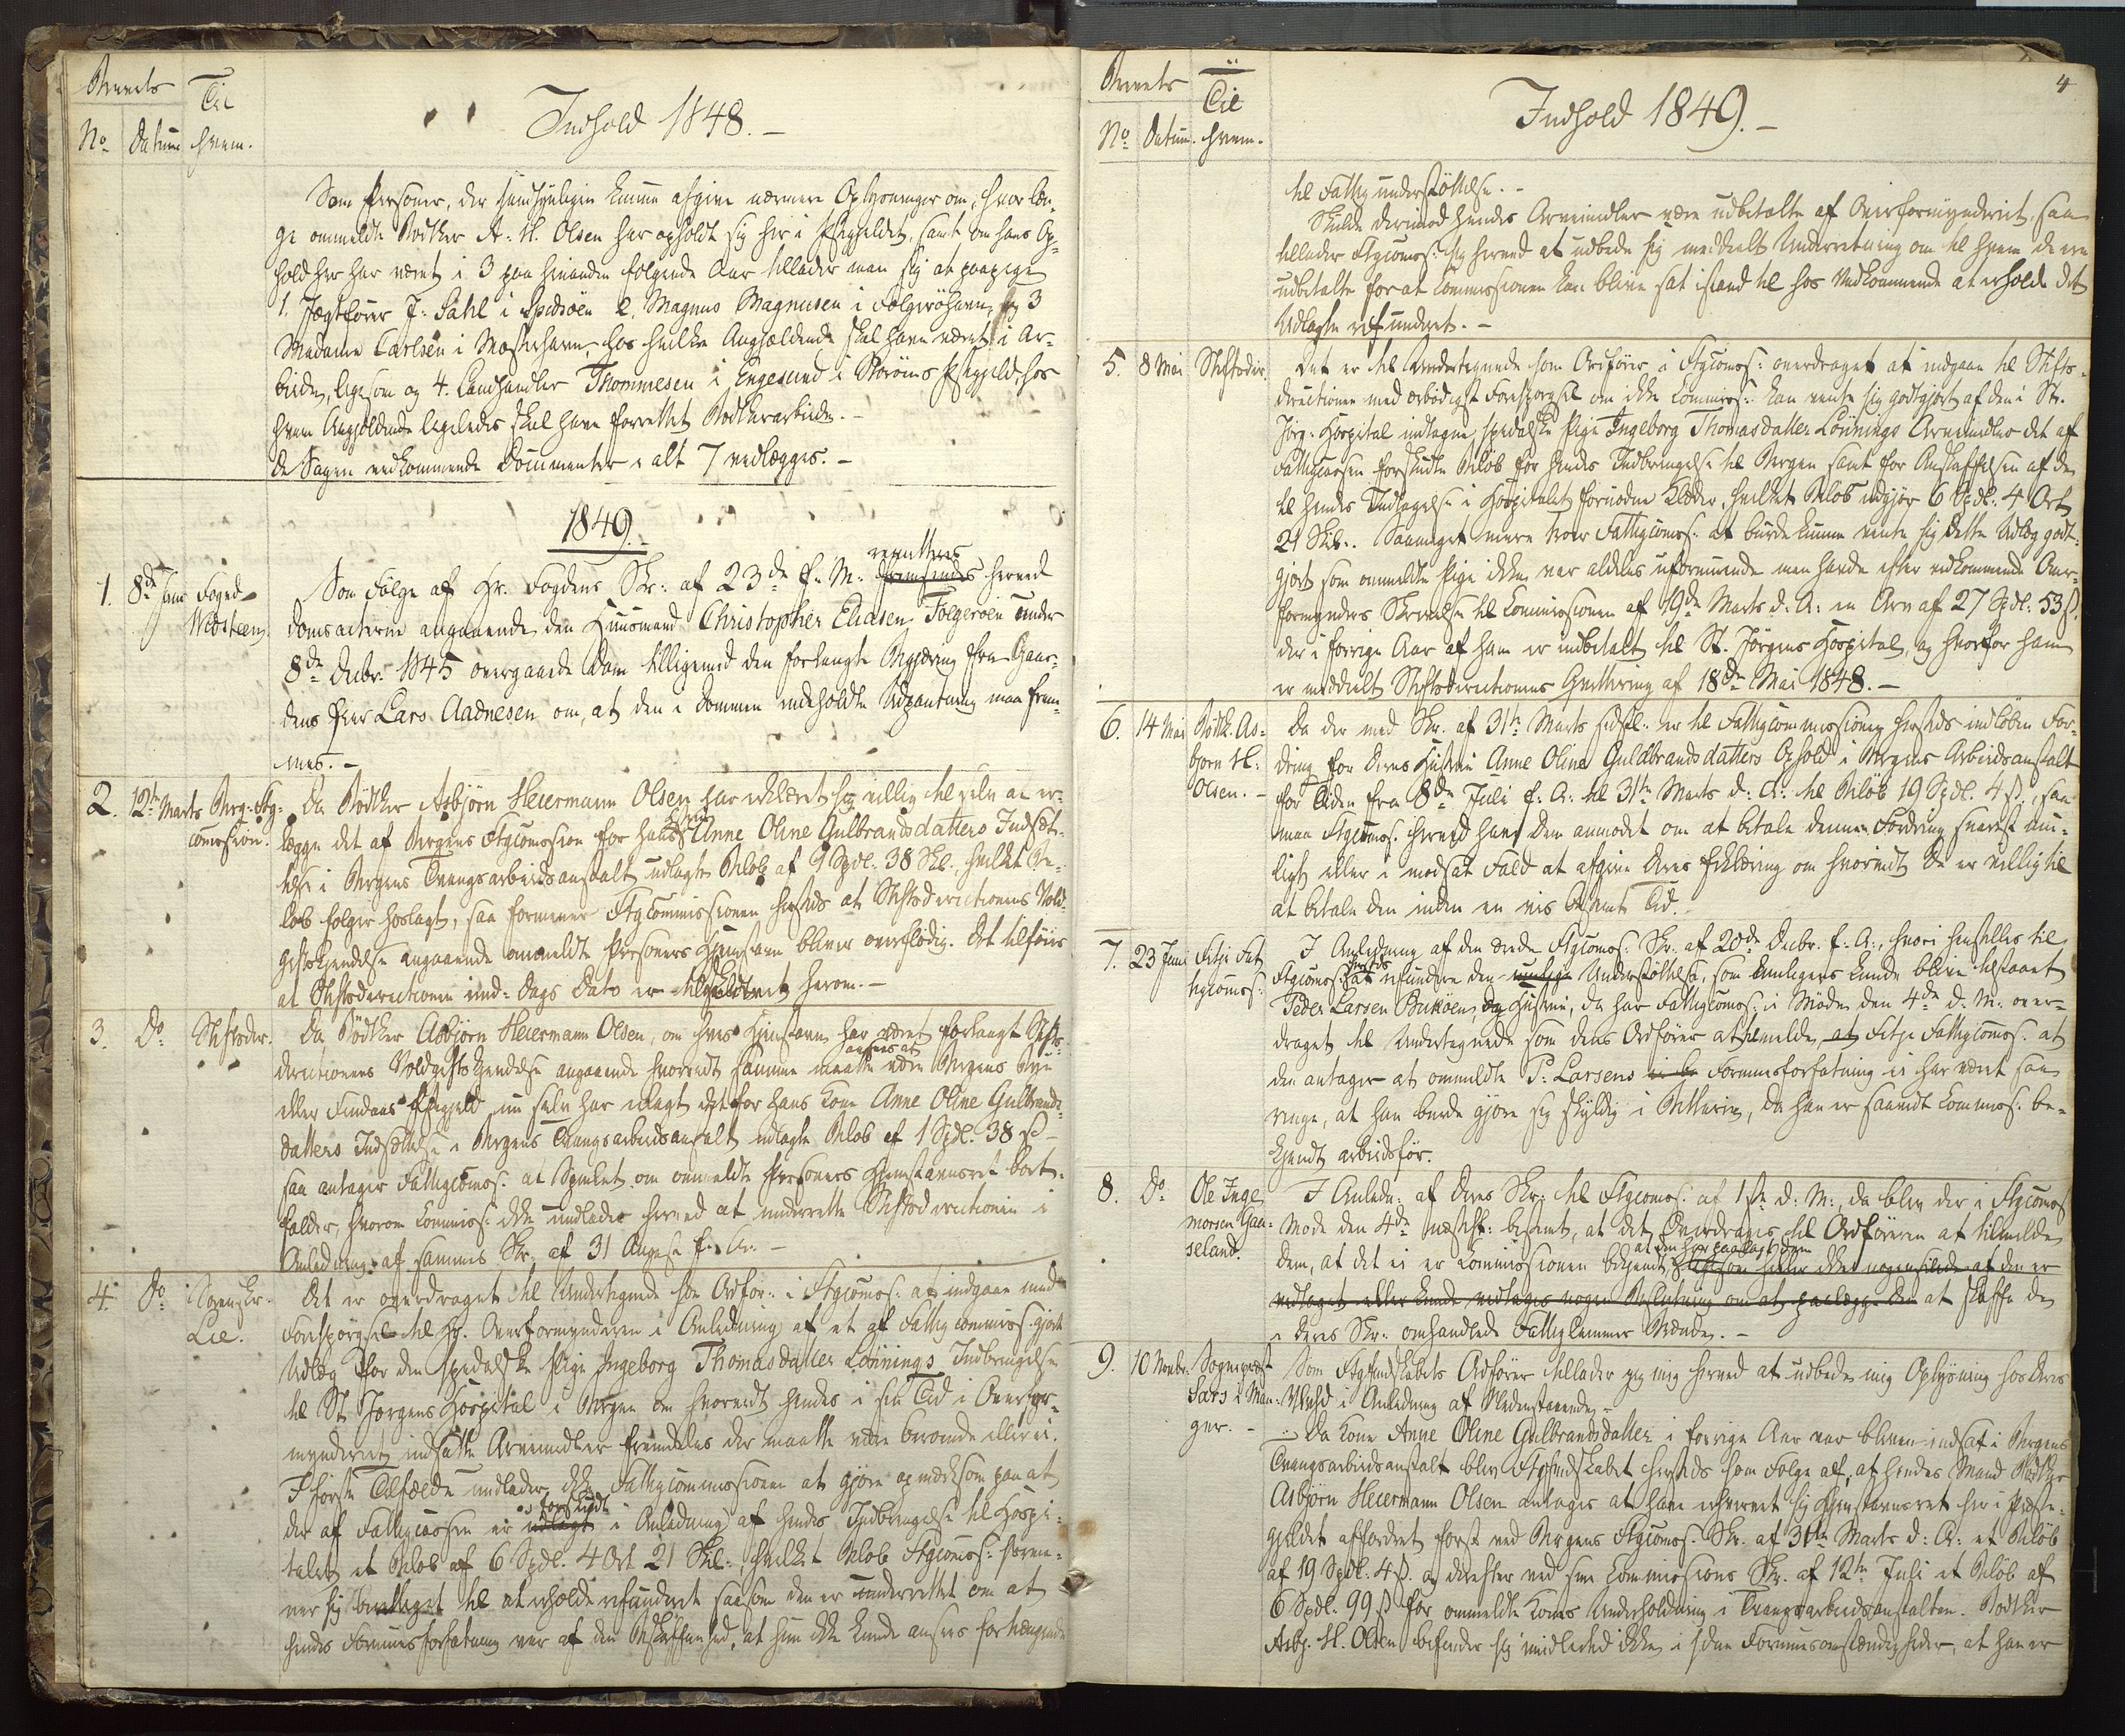 Brevets
No Datum
Til
hvem.
Indhold 1848.-
Som Personer, der sandsynligen kunne afgive nærmere Oplysninger om, hvor læn-
ge ommeldte Bødker A. H. Olsen har opholdt sig her i Præstegjeldet, samt om hans Op-
hold her har været i 3 paa hinanden følgende Aar tillader man sig at paapege
1. Jægtfører J. Dahl i Spidsöen 2. Magnus Magnusen i Folgeröhavn, og 3
Madame Carlsen i Mosterhavn, hos hvilke Angjældende skal have været i Ar-
beide, ligesom og 4. Landhandler Thommesen i Engesund i Storöens Præstegjeld, hos
hvem Angjældende ligeledes skal have forrettet Bødkerarbeide.-
De Sagen vedkommende Documenter i alt 7 vedlægges.-
1849.
1. 8de Janr Foged
Widsteen
Som Følge af Hr. Fogdens Skr: af 23de f. M. fremsendes remitteres herved
Domsacterne angaaende den Huusmand Christopher Eliasen Folgeröen under
8de Decbr. 1845 overgaaede Dom tilligemed den forlangte Begjæring fra Gaar-
dens Eier Lars Aadnesen om, at den i Dommen indeholdte Udpantning maa frem-
mes.-
2. 12te Marts Berg: Ftg:
comission.
Da Bødker Asbjørn Heiermann Olsen har erklæret sig villig til selv at er-
lægge det af Bergens Ftgcomission for hans Kone Anne Oline Gulbrandsdatters Indsæt-
telse i Bergens Tvangsarbeidsanstalt udlagte Beløb af 1 Spdl. 38 Skl., hvilket Be-
løb følger hoslagt, saa formener Ftgcommissionen hersteds at Stiftsdirectionens Vold-
giftskjendelse angaaende ommeldte Personers Hjemstavn bliver overflødig. Det tilføies
at Stiftsdirectionen und: Dags Dato er tilskrevet herom.-
3. Do Stiftsdir.
Da Bødker Asbjørn Heiermann Olsen, om hvis Hjemstavn har været forlangt Stifts-
directionens Voldgiftskjendelse angaaende hvorvidt samme maatte ansees at være Bergens Bye
eller Findaas Præstegjeld, nu selv har erlagt det for hans Kone Anne Oline Gulbrands-
datters Indsættelse i Bergens Tvangsarbeidsanstalt udlagte Beløb af 1 Spdl. 38 ß
saa antager Fattigcomos. at Spm̄let om ommeldte Personers Hjemstavnsret bort-
falder, hvorom Commiss: ikke undlader herved at underrette Stiftsdirectionen i
Anledning af sammes Skr. af 31 August f. A.-
4. Do Sorenskr.
Lie.
Det er overdraget til Undertegnede som Ordfør: i Ftgcomos: at indgaae med
Forespørgsel til Hr. Overformynderen i Anledning af et af Fattigcommiss. gjort
Udlæg for den spedalske Pige Ingeborg Thomasdatter Lönnings Indbringelse
til St. Jørgens Hospital i Bergen om hvorvidt hendes i sin Tid i Overfor-
mynderiet indsatte Arvemidler fremdeles der maatte være beroende eller ei.
I første Tilfælde undlader ikke Fattigcommissionen at gjøre opmærksom paa at
der af Fattigcassen er udlagt forskudt i Anledning af hendes Indbringelse til Hospi-
talet et Beløb af 6 Spdl. 4 Ort 21 Skl:, hvilket Beløb Ftgcomos: forme-
ner sig berettiget til at erholde refunderet saasom den er underrettet om at
hendes Formuesforfatning var af den Beskaffenhed, at hun ikke kunde ansees fortrængende
Brevets
No Datum.
Til
hvem.
Indhold 1849.-
4
til Fattigunderstøttelse.-
Skulde derimod hendes Arvemidler være udbetalte af Overformynderiet, saa
tillader Ftgcomos: sig herved at udbede sig meddeelt Underretning om til hvem de ere
udbetalte for at Commissionen kan blive sat istand til hos Vedkommende at erholde det
Udlagte refunderet.-
5. 8 Mai Stiftsdir.
Det er til Undertegnede som Ordfører i Ftgcomos: overdraget at indgaae til Stifts-
directionen med ærbødigst Forespørgsel om ikke Commiss: kan vente sig godtgjort af den i St.
Jørg: Hospital indtagne spedalske Pige Ingeborg Thomasdatter Lönnings Arvemidler det af
Fattigcassen forskudte Beløb for hendes Indbringelse til Bergen samt for Anskaffelsen af de
til hendes Indtagelse i Hospitalet fornødne Klæder, hvilket Beløb udgjør 6 Spdl. 4 Ort
21 Skl.. Saameget mere troer Fattigcomos: at burde kunne vente sig dette Udlæg godt-
gjort som ommeldte Pige ikke var aldeles uformuende men havde efter vedkommende Over-
formynders Skrivelse til Commissionen af 19de Marts d. A: en Arv af 27 Spdl. 53 ß.
der i forrige Aar af ham er indbetalt til St. Jørgens Hospital, og hvorfor ham
er meddeelt Stiftsdirectionens Qvittering af 18de Mai 1848.-
6. 14 Mai Bödk: As-
bjørn H.
Olsen.-
Da der med Skr. af 31te Marts sidstl: er til Fattigcommissionen hersteds indløben For-
dring for Deres Hustrue Anne Oline Guldbrandsdatters Ophold i Bergens Arbeidsanstalt
for Tiden fra 8de Juli f. A: til 31te Marts d. A: til Beløb 19 Spdl. 4 ß., saa
maa Ftgcomos. herved have Dem anmodet om at betale denne Fordring snarest mu-
ligt eller i modsat Fald at afgive Deres Erklæring om hvorvidt De er villig til
at betale den inden en vis bestemt Tid.
7. 23 Juni Fitje Fat
tigcomos:
I Anledning af den ærede Ftgcomos: Skr. af 20de Decbr. f. A., hvori henstilles til
Ftgcomos: hersteds at refundere den muelige Understøttelse, som muligens kunde blive tilstaaet
Peder Larsen Bukkøen og Hustrue, da har Fattigcomos: i Møde den 4de d. M. over-
draget til Undertegnede som dens Ordfører at tilmelde at Fitje Fattigcomos. at
den antager at ommeldte P. Larsens Formuesforfatning ei har været saa
ringe, at han burde gjøre sig skyldig i Betlerie, da han er saavidt Commiss. be-
kjendt arbeidsfør.
8. Do Ole Inge
morsen Gaa-
seland.
I Anledn: af Deres Skr: til Ftgcomos. af 1ste d. M., da blev der i Ftgcomos
Møde den 4de næstefter bestemt, at det overdrages til Ordføreren at tilmelde
Dem, at det ei er Commissionen bekjendt, at den har paalagt Dem ligesom heller ikke nogensinde af den er
vedtaget eller kunde vedtages nogen Beslutning om at paalægge Dem at skaffe den
i Deres Skr: omhandlede Fattiglemmer Brænde.-
9. 10 Novbr. Sognepræst
Sars i Man-
ger.-
Som Ftgforstdskabets Ordfører tillader jeg mig herved at udbede mig Oplysning hos Deres
Velærvd i Anledning af Nedenstaaende.-
Da Kone Anne Oline Gulbrandsdatter i forrige Aar var bleven indsat i Bergens
Tvangsarbeidsanstalt blev Ftgforstdskabet hersteds som Følge af, at hendes Mand Bødker
Asbjørn Heiermann Olsen antages at have erhvervet sig Hjemstavnsret her i Præste-
gjeldet affordret først ved Bergens Ftgcomos. Skr. af 31te Marts d: A: et Beløb
af 19 Spdl. 4 ß. og derefter ved sm̄e Commissions Skr. af 12te Juli et Beløb af
6 Spdl. 99 ß for ommeldte Kones Underholdning i Tvangsarbeidsanstalten. Bødker
Asbj. H. Olsen befinder sig imidlertid ikke i sdan Formuesomstændigheder, at han er